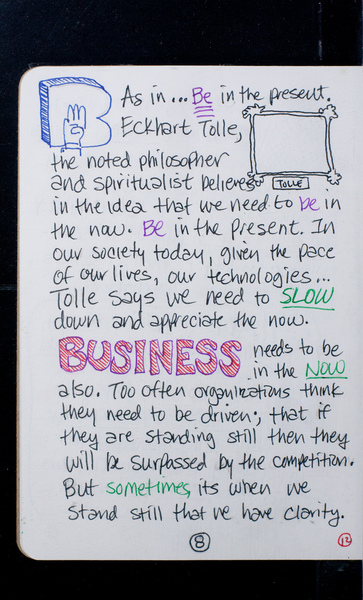 B As in... Be in the present.
Eckhart Tolle,
the noted philosopher
and spiritualist believes
TOLLE
in the idea that we need to be in
the now. Be in the present. In
our society today, given the pace
of our lives, our technologies...
Tolle says we need to SLOW
down and appreciate the now.
BUSINESS needs to be
in the NOW
also. Too often organizations think
they need to be driven; that if
they are standing still then they
will be surpassed by the competition.
But sometimes, its when we
stand still that we have clarity.
8
12